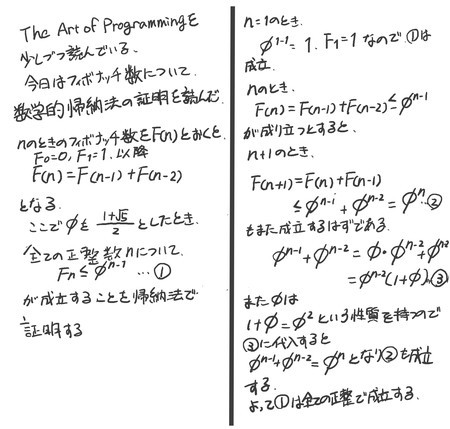 The Art of Programmingを
少しづつ読んでいる.
今日はフィボナッチ数について.
数学的帰納法の証明を読んだ.
nのときのフィボナッチ数をF(n)とおくと
F₀=0, F₁=1. 以降
F(n) = F(n-1) + F(n-2)
となる.
ここでφを (1+√5)/2 としたとき.
全ての正整数nについて.
Fn ≤ φⁿ⁻¹ … ①
が成立することを帰納法で
証明する
n=1のとき.
φ¹⁻¹ = 1. F₁=1 なので. ①は
成立.
nのとき.
F(n) = F(n-1) + F(n-2) ≤ φⁿ⁻¹
が成り立つとすると.
n+1のとき.
F(n+1) = F(n) + F(n-1)
≤ φⁿ⁻¹ + φⁿ⁻² = φⁿ … ②
もまた成立するはずである.
φⁿ⁻¹ + φⁿ⁻² = φ・φⁿ⁻² + φⁿ⁻²
= φⁿ⁻²(1+φ) … ③
またφは
1+φ = φ² という性質を持つので
③に代入すると
φⁿ⁻¹+φⁿ⁻² = φⁿ となり②も成立
する.
よって①は全ての正整で成立する.